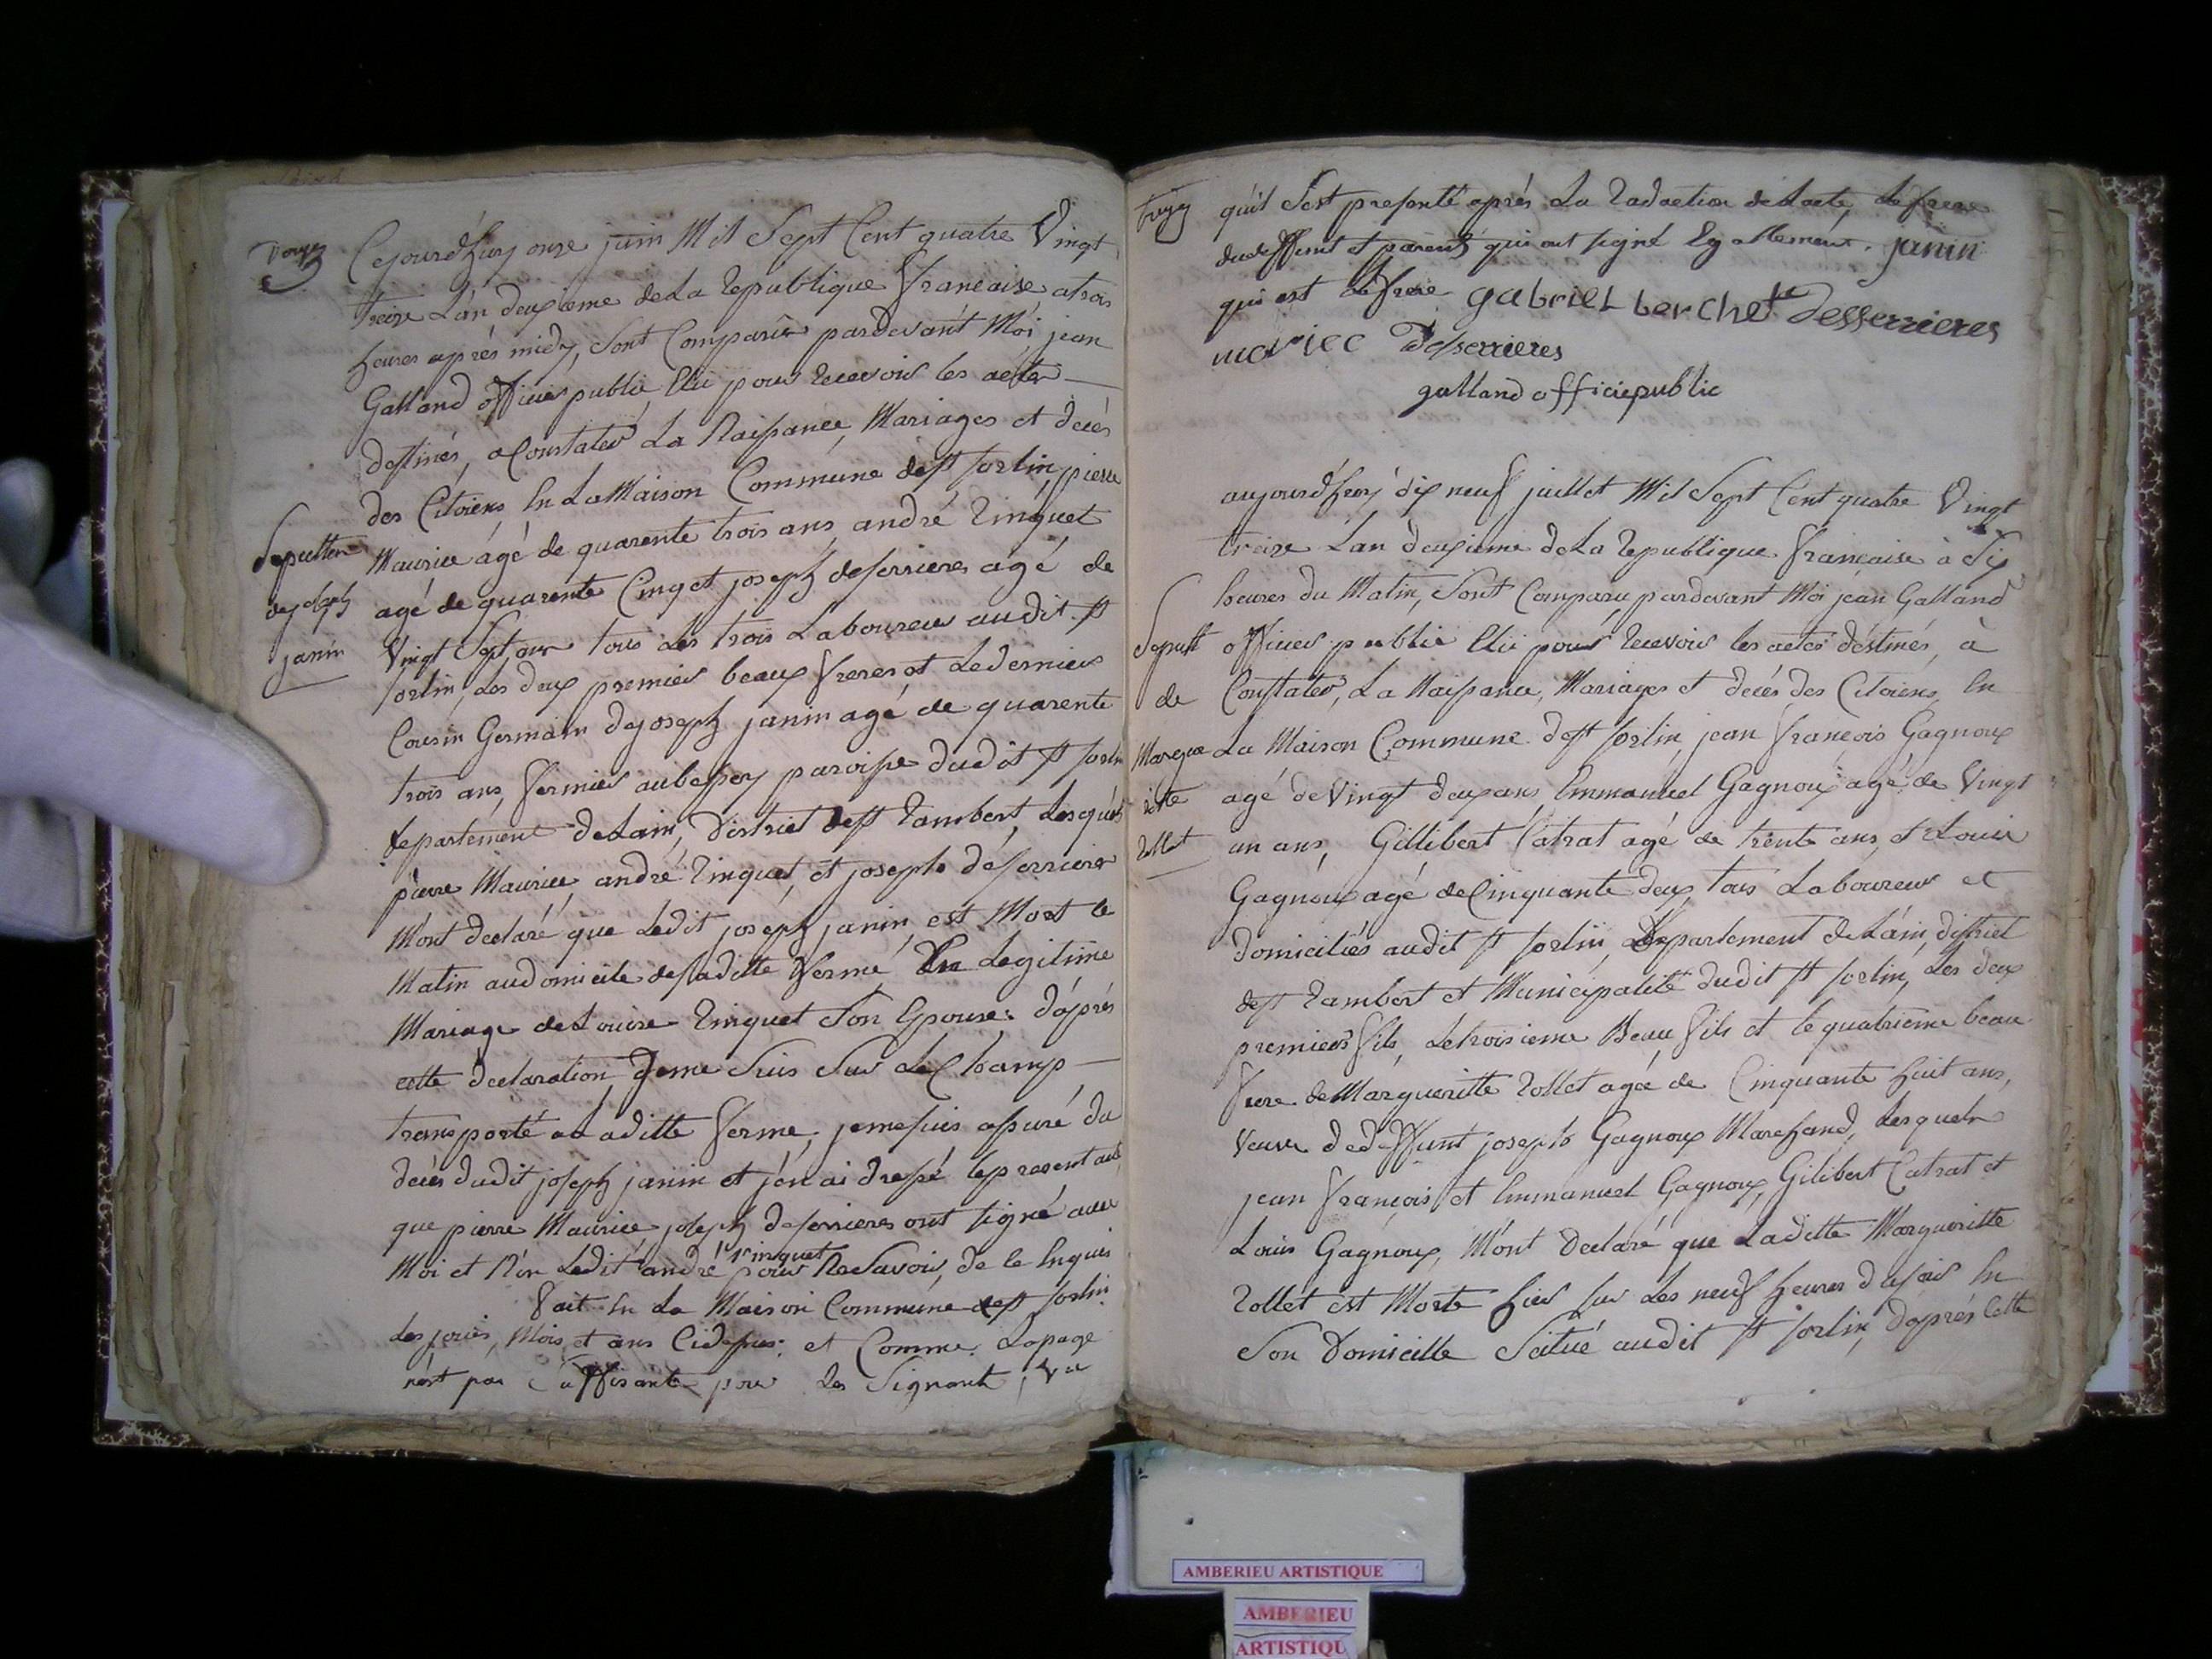 Cejourd'huy onze juin Mil Sept Cent quatre Vingt
treize L'an deuxieme deLa Republique francaise atrois
heures après midy, Sont Comparûs pardevant Moi jean
Galland officier public Elû pour Recevoir les actes
destinés, a Constater La Naissance, Mariages et decès
des Citoiens En LaMaison Commune dest sorlin, pierre
Maurice âgé de quarente trois ans, andré Rinquet
agé de quarente Cinq et joseph deserrieres agé de
Vingt Sept ans tous Les trois Laboureur audit st
sorlin, Les deux premier beaux freres et Le dernier
Cousin Germain dejoseph janin agé de quarente
trois ans, fermier aubessey paroisse dudit st sorlin
departement deLain, District dest Rambert, Lesquels
pierre Maurice andré Rinquet, et joseph déserrieres
M'ont declaré que Ledit joseph janin est Mort ce
Matin audomicile deladitte ferme, En Legitime
Mariage deLouise Rinquet Son Epouse: d'après
cette declaration Jeme Suis Sur LeChamp
transporté a Laditte ferme, jemesuis assuré du
decès dudit joseph janin et jén ai dressé lepresent acte
que pierre Maurice, joseph deserrieres ont signé avec
Moi et Non Ledit andré rinquet pour NeSavoir, de ce Enquis
Fait En La Maison Commune dest sorlin
Les jours, Mois, et ans Cidessus: et Comme Lapage
n'est pas suffisante pour Les Signants, vu
Sepulture
dejoseph
janin
qu'il S'est presenté après La Redaction deLacte, Le frere
dudeffunt et parents qui ont signé Egallement. janin
qui est Le frere gabriel berchet Desserrieres
moriec Deserrieres
galland officiepublic
aujourd'huy dix neuf juillet Mil Sept Cent quatre Vingt
treize L'an deuxieme deLa Republique francaise à Six
heures du Matin, Sont Comparu pardevant Moi jean Galland
officier public Elû pour Recevoir les actes déstinés, à
Constater, La Naissance, Mariages et decès des Citoiens, En
La Maison Commune dest sorlin, jean françois Gagnoux
agé deVingt deuxans, Emmanuel Gagnoux agé de Vingt
un ans, Gillibert Catrat agé de trente ans, et Louis
Gagnoux agé deCinquante deux, tous Laboureur et
domiciliés audit st sorlin, Departement deLain, district
dest Rambert et Municipalité dudit st sorlin, Les deux
premiers fils, Letroisieme Beau fils et lequatrieme beau
frere de Marguerite Rollet agée de Cinquante huit ans,
Veuve dedeffunt joseph Gagnoux Marchand, Lesquels
jean françois et Emmanuel Gagnoux, Gilibert Catrat et
Louis Gagnoux, M'ont declaré que Laditte Margueritte
Rollet est Morte hier sur Les neuf heures dusoir En
Son Domicille Scitué audit st sorlin, daprès Cette
Sepult
de
Margue
ritte
Rollet
AMBERIEU ARTISTIQUE
AMBERIEU
ARTISTIQU